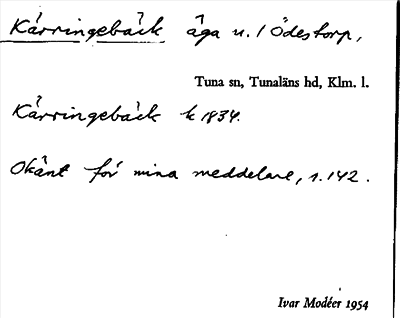 Kärringebäck äga u. 1 Ödestorp,
Tuna sn, Tunaläns hd, Klm. l.
Kärringebäck k 1834.
Okänt för mina meddelare, s. 142.
Ivar Modéer 1954